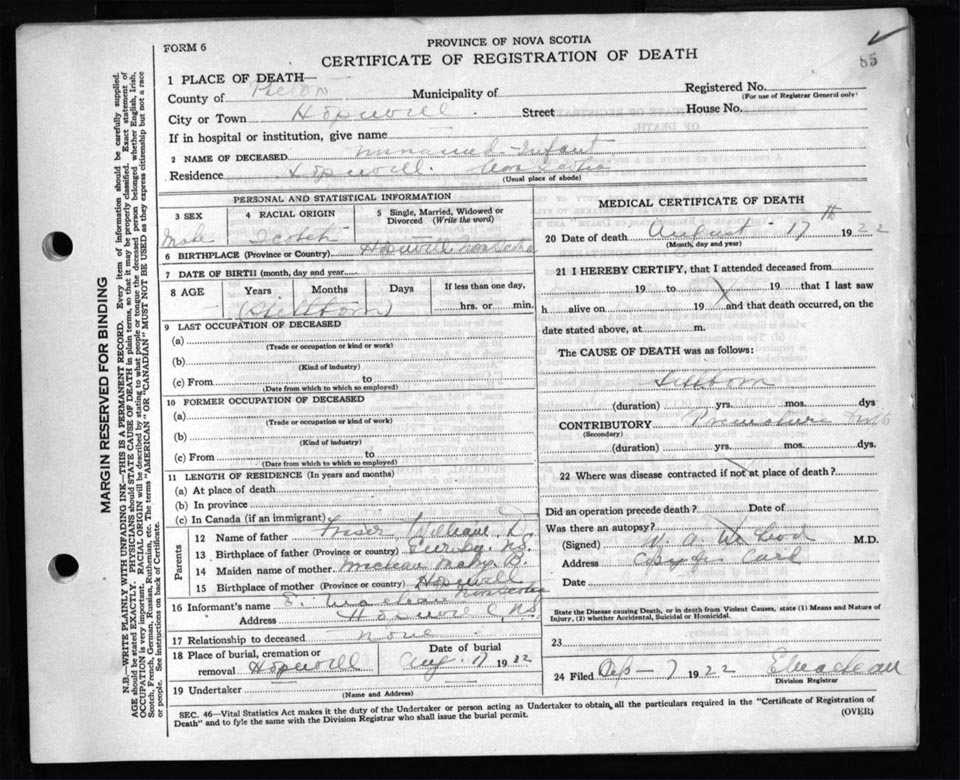 85
FORM 6
PROVINCE OF NOVA SCOTIA
CERTIFICATE OF REGISTRATION OF DEATH
1 PLACE OF DEATH—
County of Pictou Municipality of Registered No.
(For use of Registrar General only)
City or Town Hopewell Street House No.
If in hospital or institution, give name
2 NAME OF DECEASED Unnamed Infant
Residence Hopewell Nova Scotia
(Usual place of abode)
PERSONAL AND STATISTICAL INFORMATION
3 SEX 4 RACIAL ORIGIN 5 Single, Married, Widowed or Divorced (Write the word)
Male Scotch
6 BIRTHPLACE (Province or Country) Hopewell Nova Scotia
7 DATE OF BIRTH (month, day and year
8 AGE Years Months Days If less than one day,
(Stillborn) hrs. or min.
9 LAST OCCUPATION OF DECEASED
(a)
(Trade or occupation or kind or work)
(b)
(Kind of industry)
(c) From to
(Date from which to which so employed)
10 FORMER OCCUPATION OF DECEASED
(a)
(Trade or occupation or kind or work)
(b)
(Kind of industry)
(c) From to
(Date from which to which so employed)
11 LENGTH OF RESIDENCE (In years and months)
(a) At place of death
(b) In province
(c) In Canada (if an immigrant)
Parents
12 Name of father Fraser William D.
13 Birthplace of father (Province or country) N.S.
14 Maiden name of mother McLean Mary B.
15 Birthplace of mother (Province or country) Hopewell Nova Scotia
16 Informant's name E. Maclean
Address Hopewell, N.S.
17 Relationship to deceased None
18 Place of burial, cremation or removal Hopewell Date of burial Aug. 17 1922
19 Undertaker
(Name and Address)
MEDICAL CERTIFICATE OF DEATH
20 Date of death August 17th 1922
(Month, day and year)
21 I HEREBY CERTIFY, that I attended deceased from
19 to 19 that I last saw
h alive on 19 and that death occurred, on the
date stated above, at m.
The CAUSE OF DEATH was as follows:
Stillborn
(duration) yrs. mos. dys
CONTRIBUTORY Premature
(Secondary)
(duration) yrs. mos. dys.
22 Where was disease contracted if not at place of death?
Did an operation precede death? Date of
Was there an autopsy?
(Signed) McLeod M.D.
Address
Date
State the Disease causing Death, or in death from Violent Causes, state (1) Means and Nature of Injury, (2) whether Accidental, Suicidal or Homicidal.
23
24 Filed Sep 7 1922 E Maclean
Division Registrar
SEC. 46—Vital Statistics Act makes it the duty of the Undertaker or person acting as Undertaker to obtain all the particulars required in the "Certificate of Registration of
Death" and to fyle the same with the Division Registrar who shall issue the burial permit. (OVER)
MARGIN RESERVED FOR BINDING
N.B.—WRITE PLAINLY WITH UNFADING INK—THIS IS A PERMANENT RECORD. Every item of information should be carefully supplied.
AGE should be stated EXACTLY. PHYSICIANS should STATE CAUSE OF DEATH in plain terms, so that it may be properly classified. Exact statement of
OCCUPATION is very important. RACIAL ORIGIN will be described by stating to what people or tongue the deceased person belonged whether English, Irish,
Scotch, French, German, Russian, Ruthenian, etc. The terms "AMERICAN" OR "CANADIAN" MUST NOT BE USED as they express citizenship but not a race
or people. See Instructions on back of Certificate.